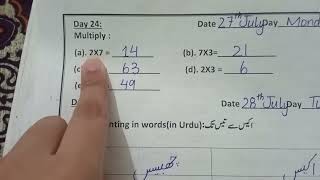 Day 24: Date 27th July Day Mond
Multiply :
(a). 2X7 = 14 (b). 7X3= 21
(c 63 (d). 2X3 = 6
(e 49
D Date 28th July Tu
nting in words(in Urdu): اکیس سے تیس تک
چھبیس اکیس